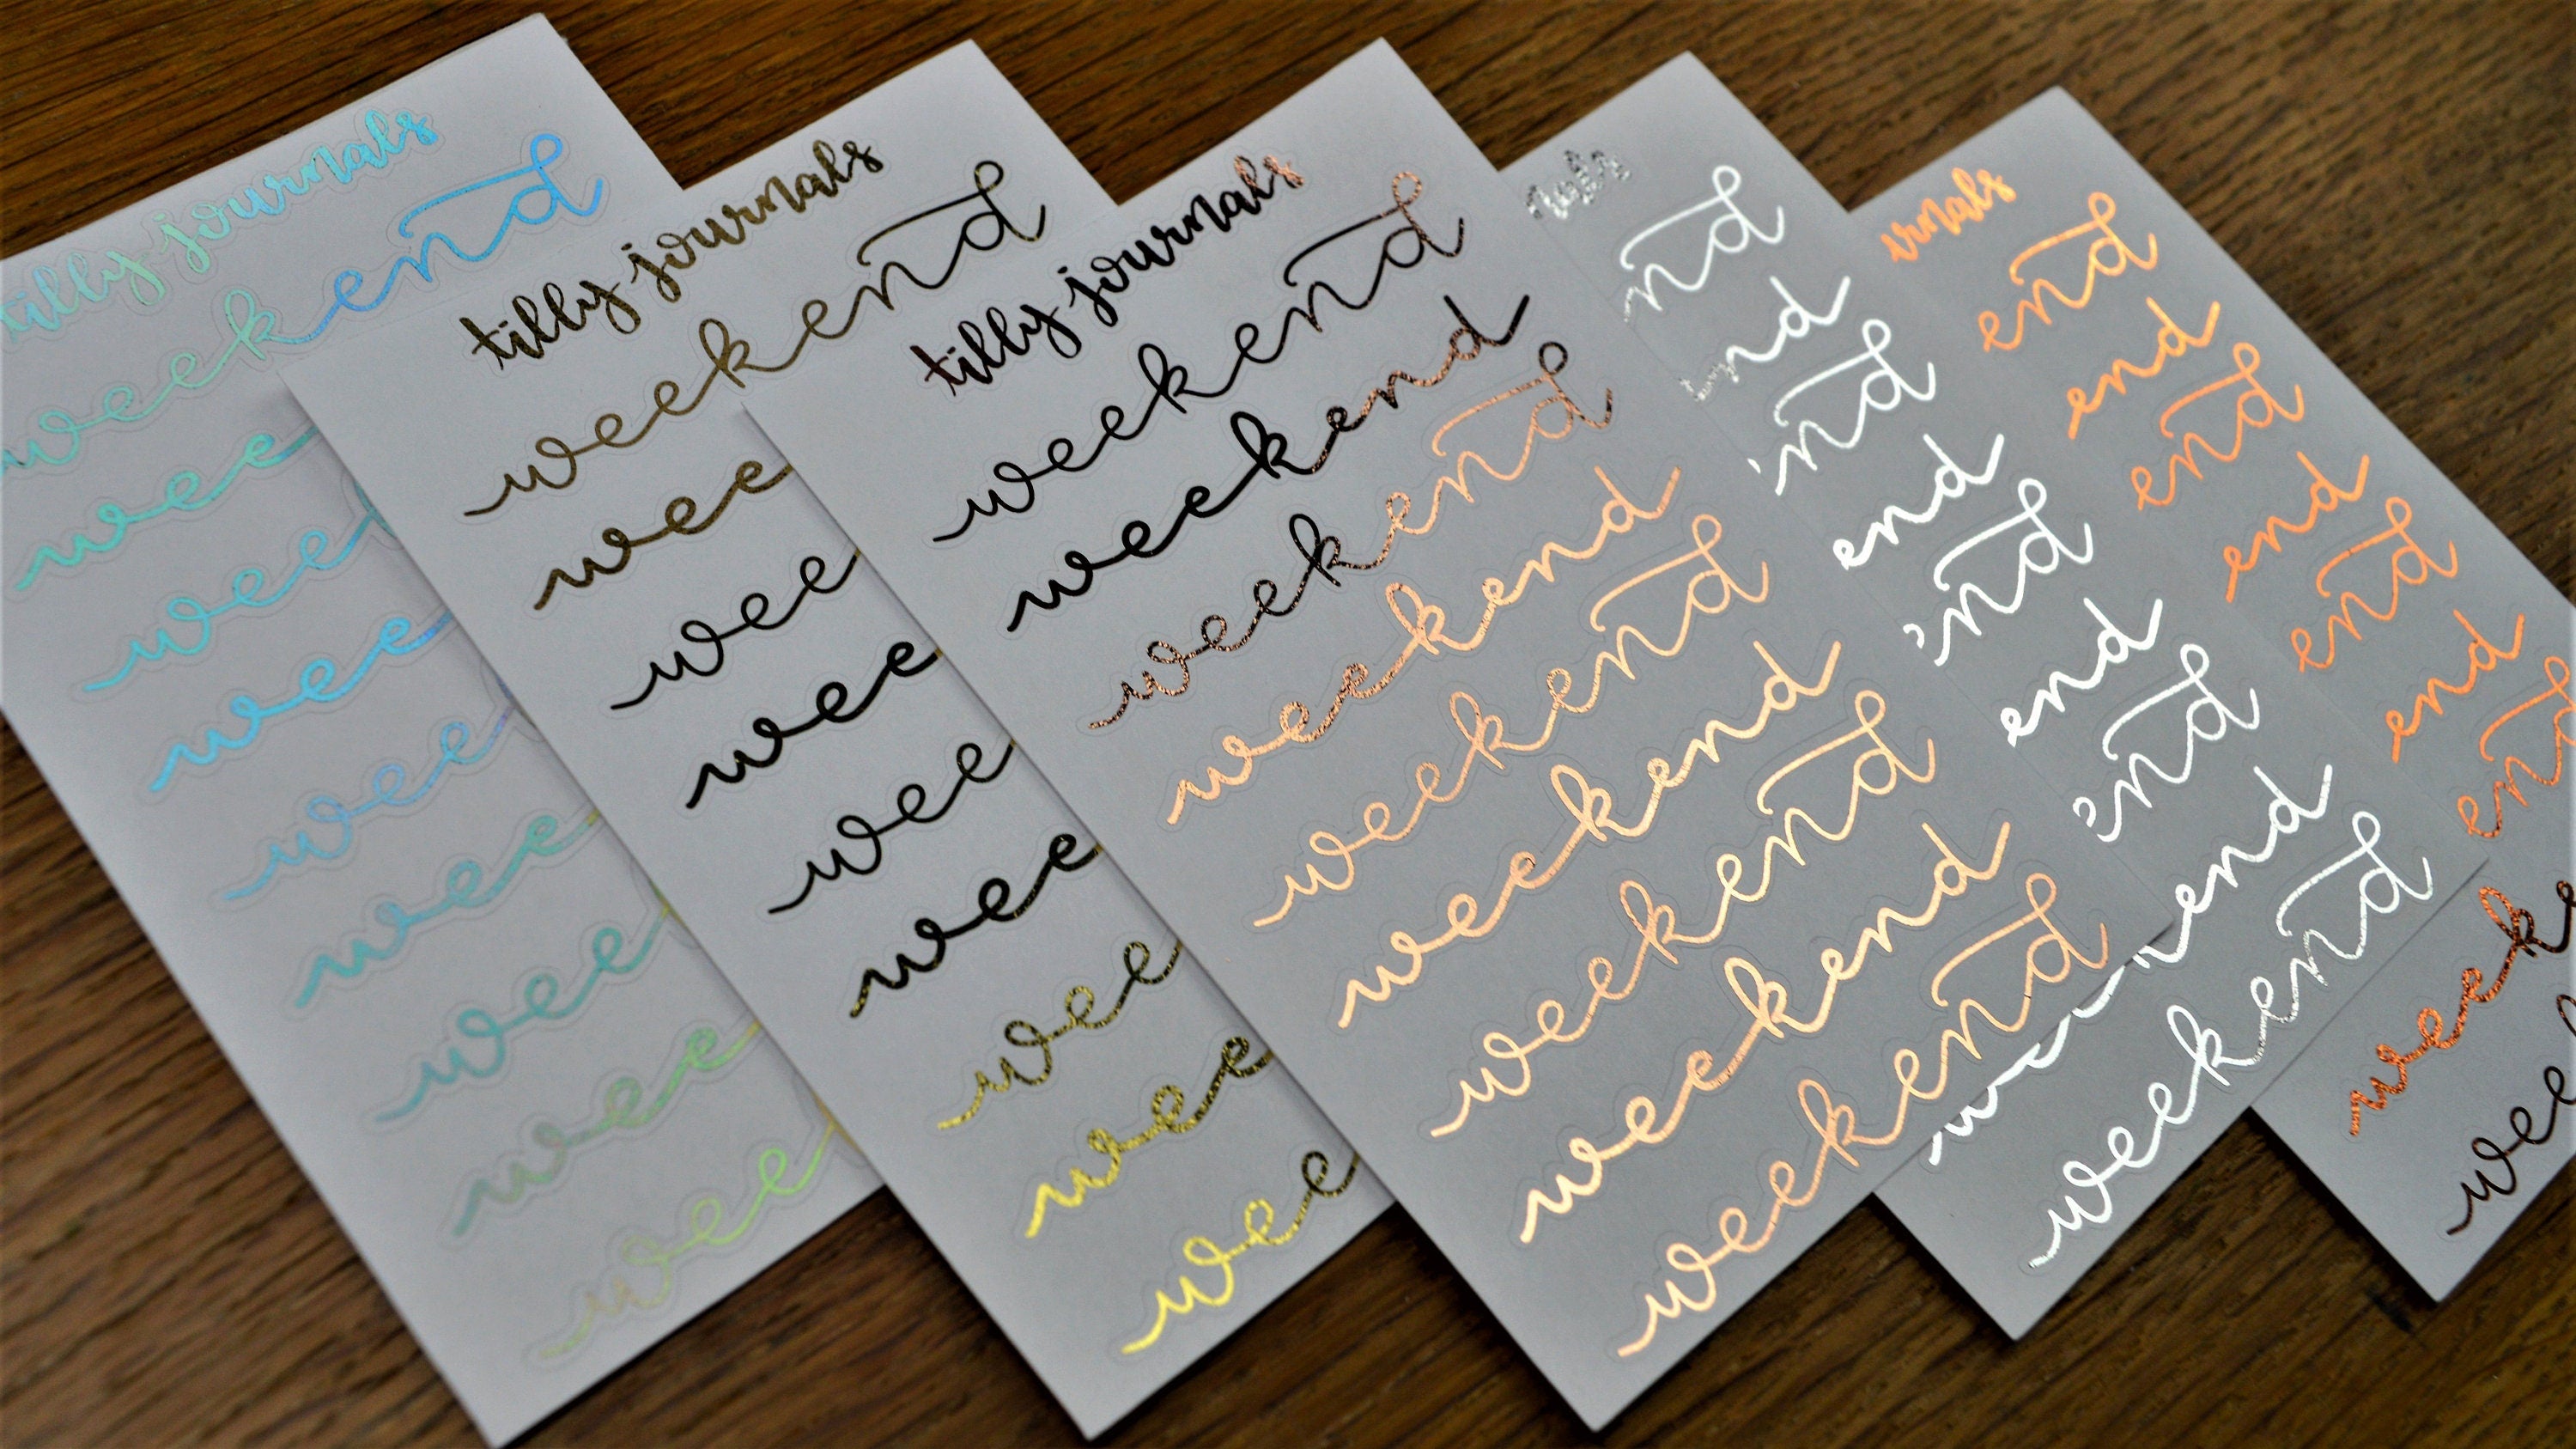 tilly journals
weekend
wee
wee
wee
wee
wee
wee
wee
wee
tilly journals
weekend
wee
wee
wee
wee
wee
wee
wee
wee
tilly journals
weekend
weekend
weekend
weekend
weekend
weekend
weekend
weekend
weekend
nals
nd
end
nd
end
nd
end
end
end
weekend
urnals
end
end
end
end
end
end
end
week
wee